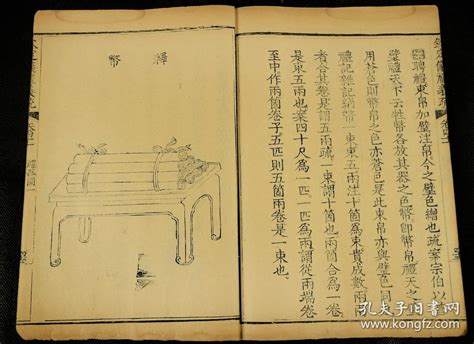 欽定儀禮義疏
聘禮束帛加璧注帛今之璧色繒也疏案宗伯以
璧禮天下云牲幣各放其器之色幣即幣帛禮天之
用蒼色則幣帛之色亦蒼色是此束帛亦與璧色同
禮記雜記納幣一束束五兩注十箇爲束貴成數兩兩
者合其卷是謂五兩疏一束謂十箇兩箇合爲一卷
是束五兩也案四十尺爲一匹一匹爲兩謂從兩端卷
至中作兩箇卷子五匹則五箇兩卷是一束也
釋幣
孔夫子旧书网
kongfz.com